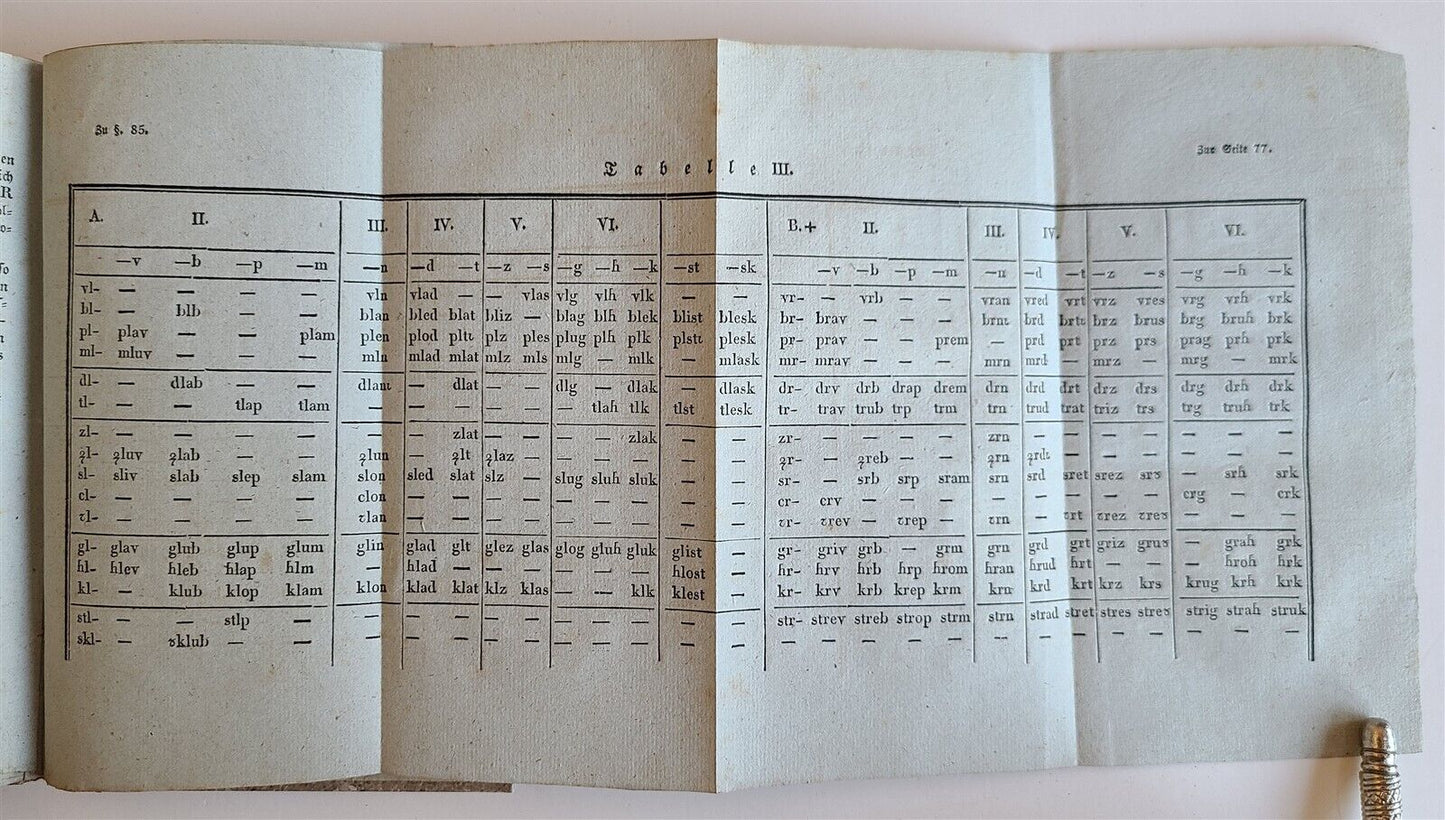 en
ich
R
Zu §. 85.
Zur Seite 77.
Tabelle III.
A. II. III. IV. V. VI. B.+ II. III. IV. V. VI.
—v —b —p —m —n —d —t —z —s —g —ɦ —k —st —sk —v —b —p —m —n —d —t —z —s —g —ɦ —k
vl- — — — — vln vlad — — vlas vlg vlɦ vlk — — vr- — vrb — — vran vred vrt vrz vres vrg vrɦ vrk
bl- — blb — — blan bled blat bliz — blag blɦ blek blist blesk br- brav — — — brnt brd brtt brz brus brg bruɦ brk
pl- plav — — plam plen plod pltt plz ples plug plɦ plk plstt plesk pr- prav — — prem — prd prt prz prs prag prɦ prk
ml- mluv — — — mln mlad mlat mlz mls mlg — mlk — mlask mr- mrav — — — mrn mrd — mrz — mrg — mrk
dl- — dlab — — dlant — dlat — — dlg — dlak — dlask dr- drv drb drap drem drn drd drt drz drs drg drɦ drk
tl- — — tlap tlam — — — — — — tlaɦ tlk tlst tlesk tr- trav trub trp trm trn trud trat triz trs trg truɦ trk
zl- — — — — — — zlat — — — — zlak — — zr- — — — — zrn — — — — — — —
ʒl- ʒluv ʒlab — — ʒlun — ʒlt ʒlaz — — — — — — ʒr- — ʒreb — — ʒrn ʒrdt — — — — — —
sl- sliv slab slep slam slon sled slat slz — slug sluɦ sluk — — sr- — srb srp sram srn srd sret srez srɤ — srɦ srk
cl- — — — — clon — — — — — — — — — cr- crv — — — — — — — — crg — crk
ꞇl- — — — — ꞇlan — — — — — — — — — ꞇr- ꞇrev — ꞇrep — ꞇrn — ꞇrt ꞇrez ꞇreɤ — — —
gl- glav glub glup glum glin glad glt glez glas glog gluɦ gluk glist — gr- griv grb — grm grn grd grt griz gruɤ — graɦ grk
ɦl- ɦlev ɦleb ɦlap ɦlm — ɦlad — — — — — — ɦlost — ɦr- ɦrv ɦrb ɦrp ɦrom ɦran ɦrud ɦrt — — — ɦroɦ ɦrk
kl- — klub klop klam klon klad klat klz klas — — klk klest — kr- krv krb krep krm krn krd krt krz krs krug krɦ krk
stl- — — stlp — — — — — — — — — — — str- strev streb strop strm strn strad stret stres streɤ strig straɦ struk
skl- — ɤklub — — — — — — — — — — — — — — — — — — — — — — — —